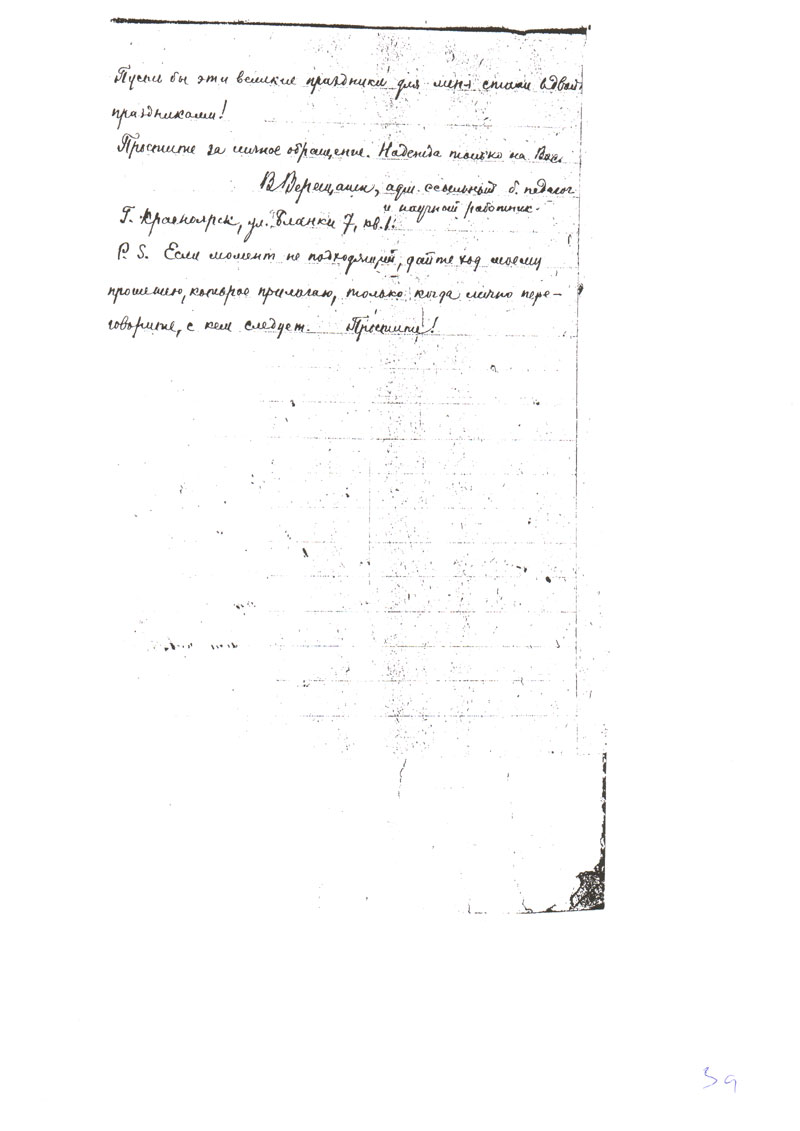 Пусть бы эти великие праздники для меня стали вдвойне
праздниками!
Простите за личное обращение. Надежда только на Вас.
В Верещагин, адм. ссыльный б. педагог
и научный работник.
Г. Красноярск, ул. Бланки 7, кв. 1.
P. S. Если момент не подходящий, дайте ход моему
прошению, которое прилагаю, только когда лично пере-
говорите, с кем следует. Простите!